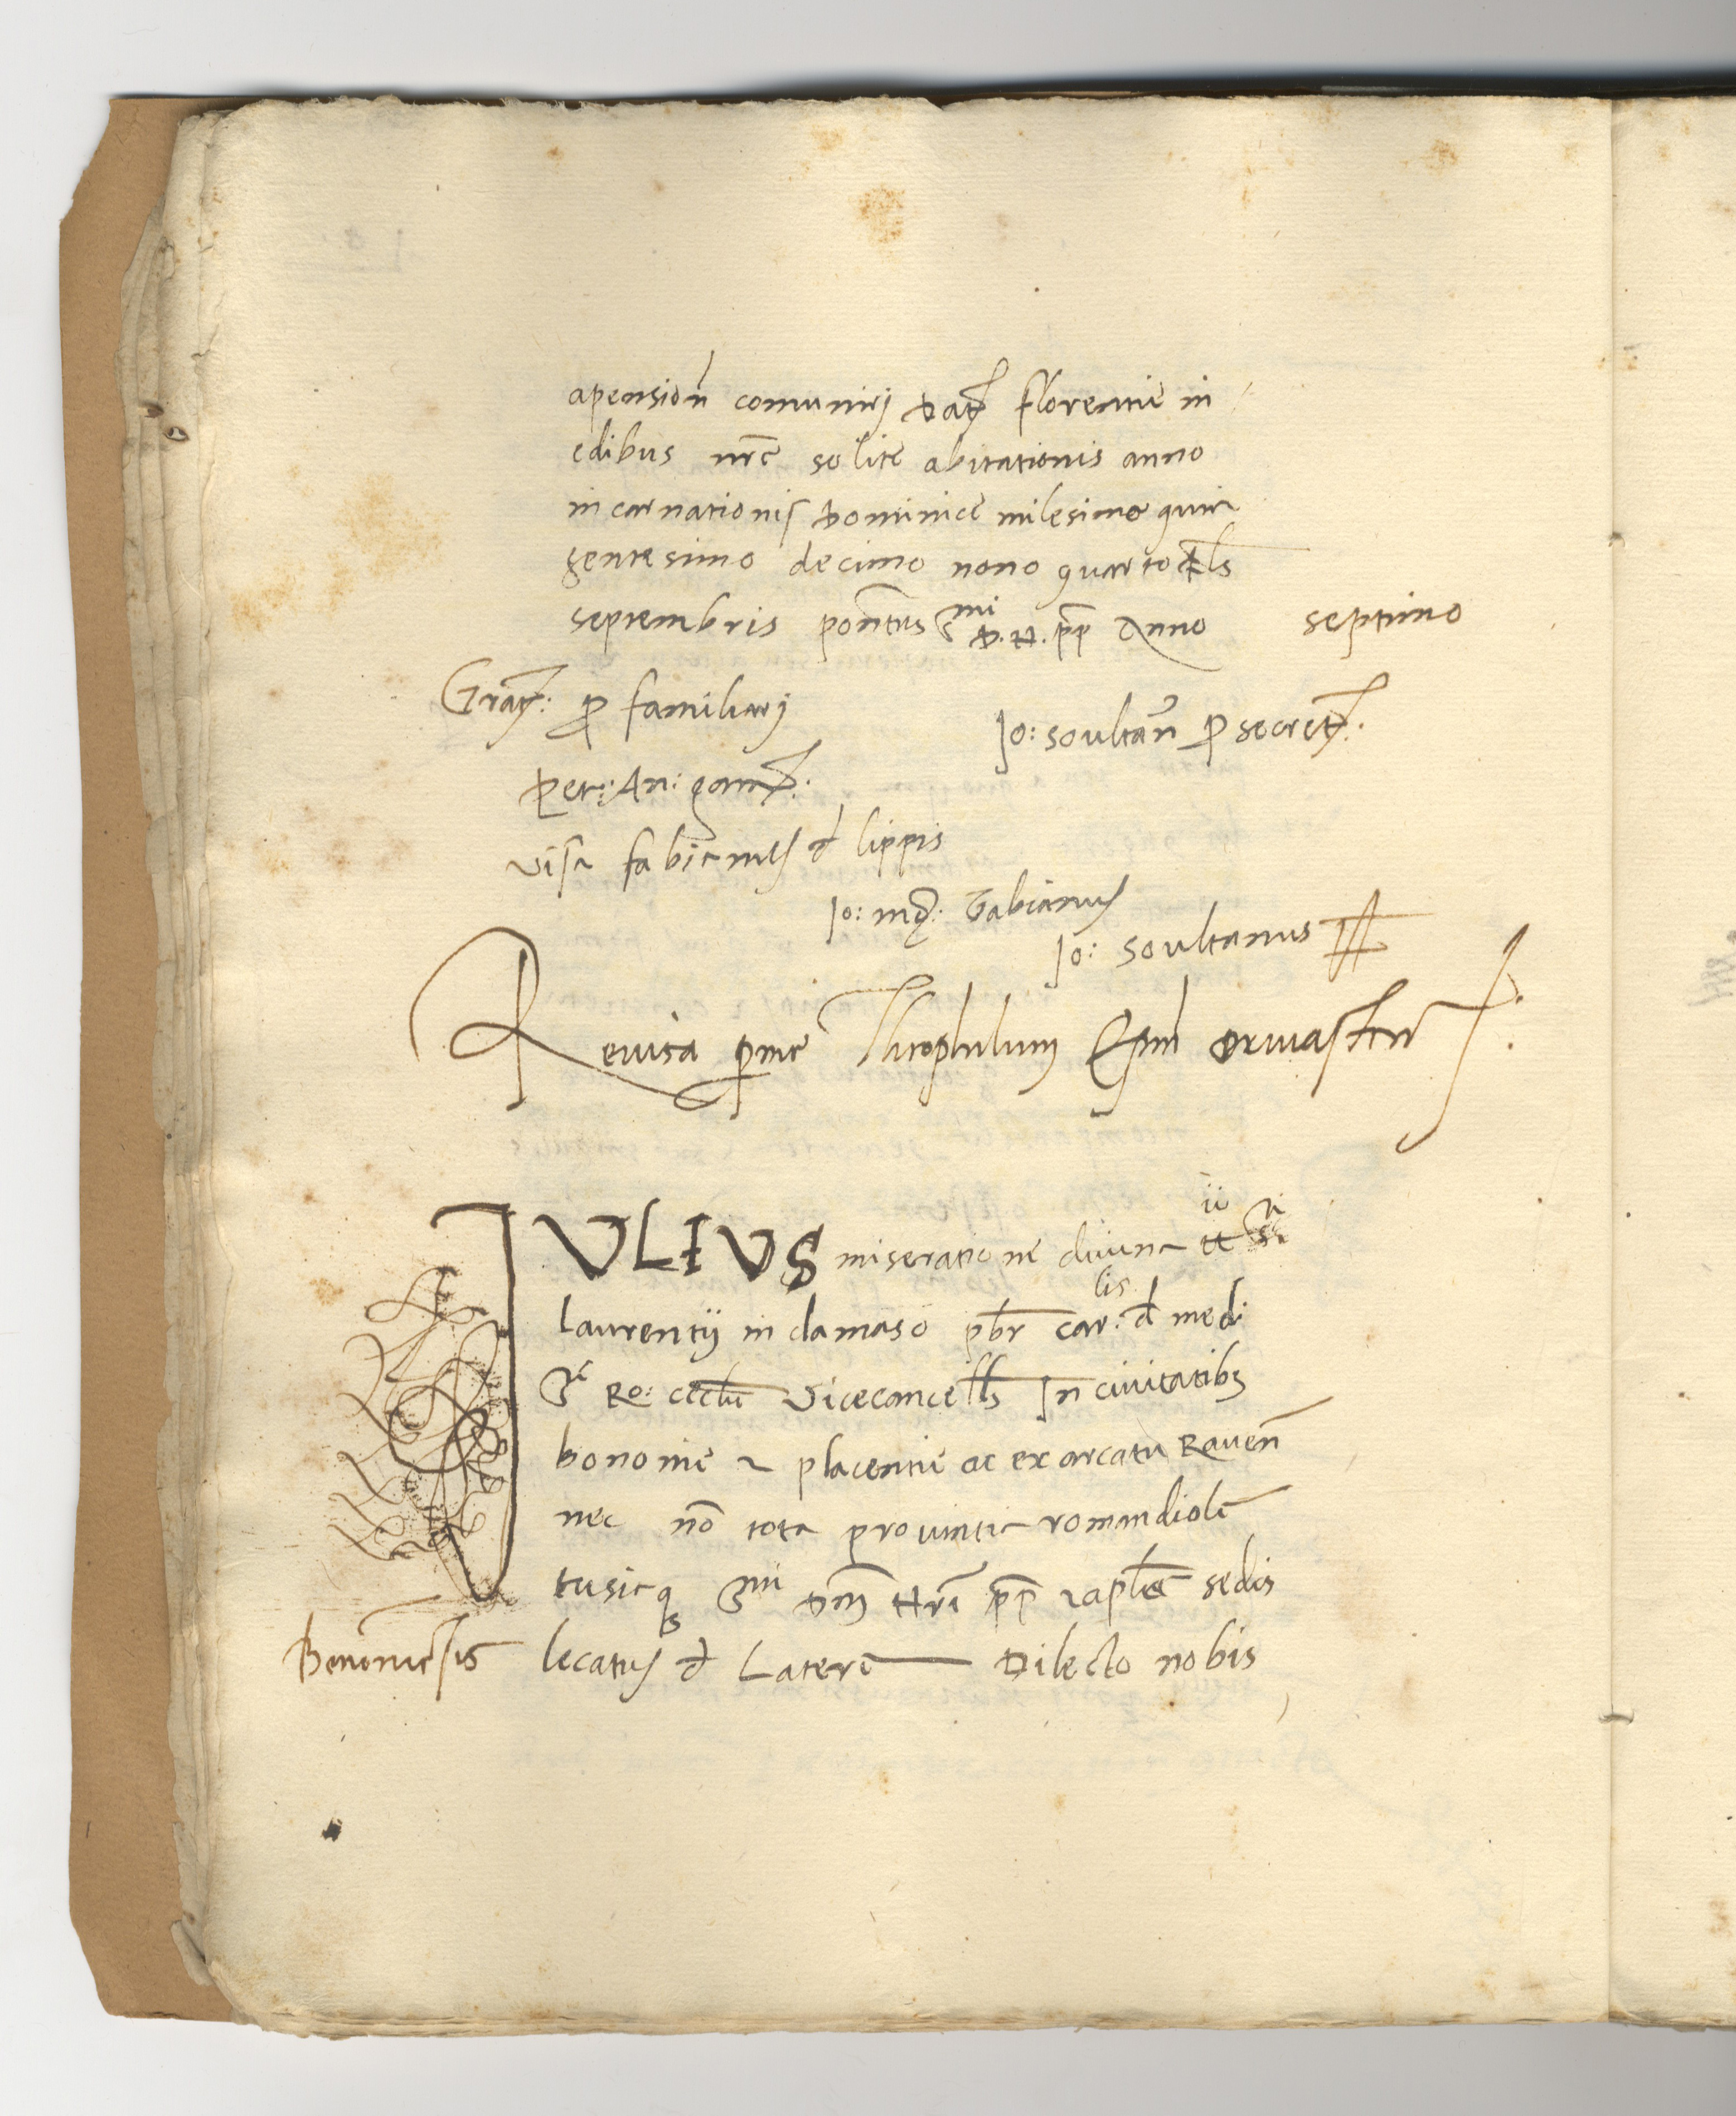 apensioñ comunirj Dat florentie in
edibus nr̃e solite abitationis anno
incarnationis Dominice milesimo quin
gentesimo decimo nono quarto kls
septembris pont̃us S mi D. N. pp Anno septimo
Grat: p familiarj
Jo: soultañ p secret.
Pet: An: gam.
visa fabianus d lippis
Jo: Fabianus
Jo: soultanus
Revisa p me Theophilum Ep̃m
IULIUS miseratione divina tt ii S ti
Laurentij in damaso pbr car: lis d medi
S te Ro: eccl̃ie Vicecancells In civitatibs
bononie & placentie ac exarcatu Raveñ
nec nõ tota provintia romandiole
tusiaq S mi Dm̃ Nr̃i pp & apl̃ce sedis
Bononiensis legatus d Latere Dilecto nobis